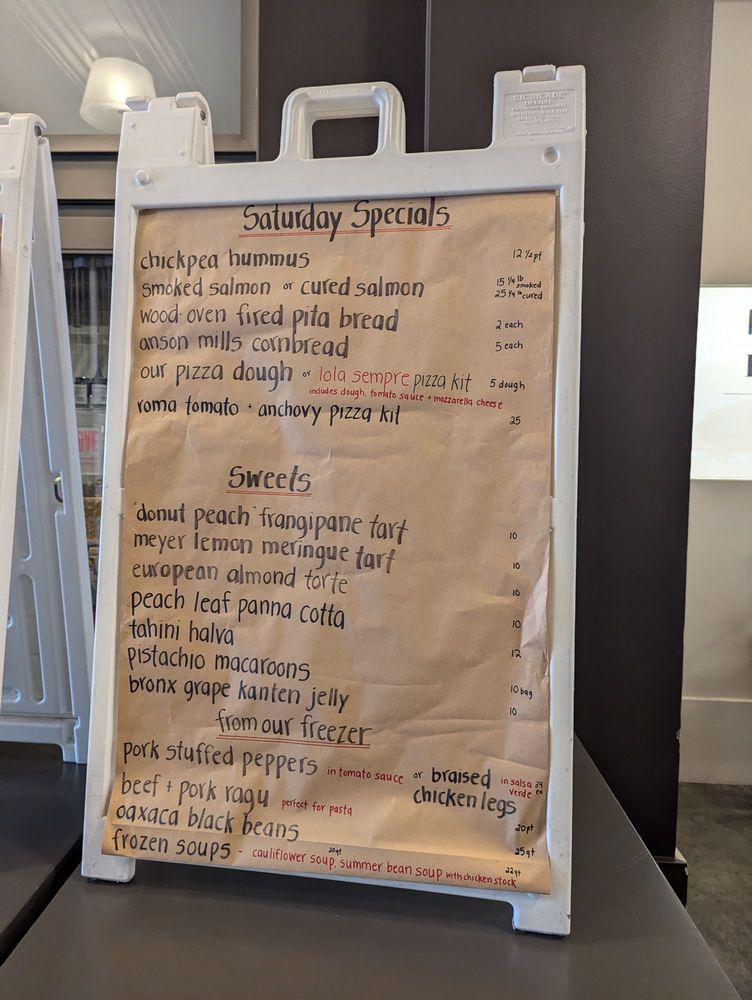 SIGNICADE
DELUXE
Saturday Specials
chickpea hummus 12 ½pt
smoked salmon or cured salmon 15 ¼ lb smoked
25 ¼ lb cured
wood oven fired pita bread 2 each
anson mills cornbread 5 each
our pizza dough or lola sempre pizza kit 5 dough
includes dough, tomato sauce + mozzarella cheese
roma tomato + anchovy pizza kit 25
Sweets
"donut peach" frangipane tart 10
meyer lemon meringue tart 10
european almond torte 10
peach leaf panna cotta 10
tahini halva 12
pistachio macaroons 10 bag
bronx grape kanten jelly 10
from our freezer
pork stuffed peppers in tomato sauce or braised chicken legs in salsa verde 34 ea
beef + pork ragu perfect for pasta 20pt
oaxaca black beans 25qt
frozen soups - cauliflower soup, 20qt summer bean soup with chicken stock 22qt